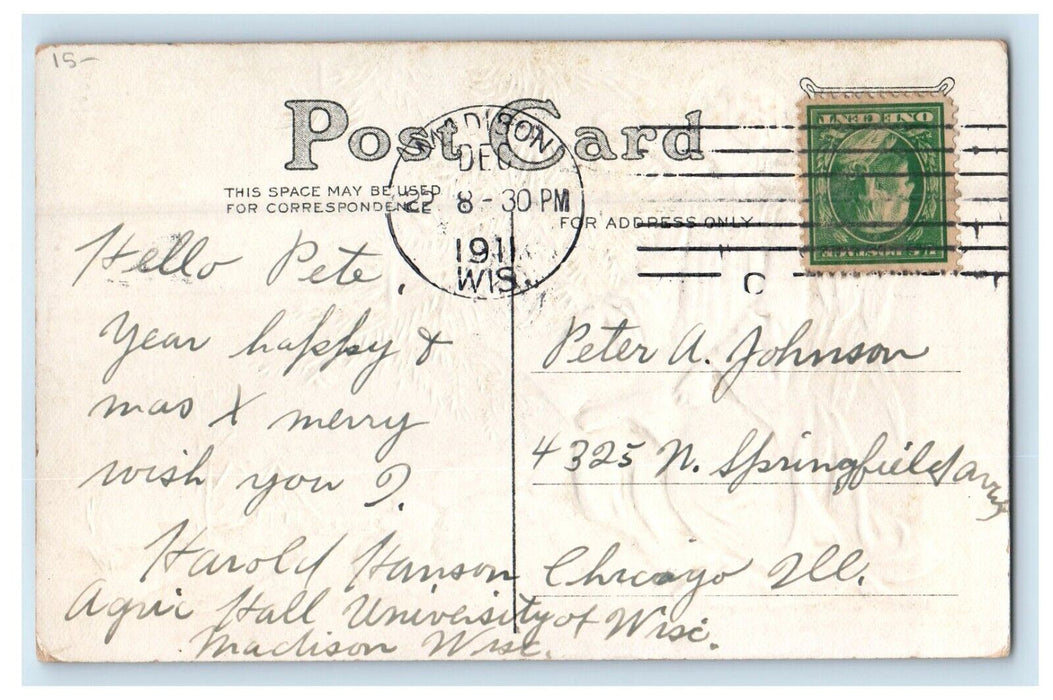 15-
Post Card
THIS SPACE MAY BE USED
FOR CORRESPONDENCE
FOR ADDRESS ONLY
MADISON
DEC
8-30 PM
1911
WIS.
C
ONE CENT
Hello Pete,
Year happy &
mas X merry
wish you I.
Harold Hanson
Agric Hall University of Wisc.
Madison Wisc.
Peter A. Johnson
4325 N. Springfield ave
Chicago Ill.